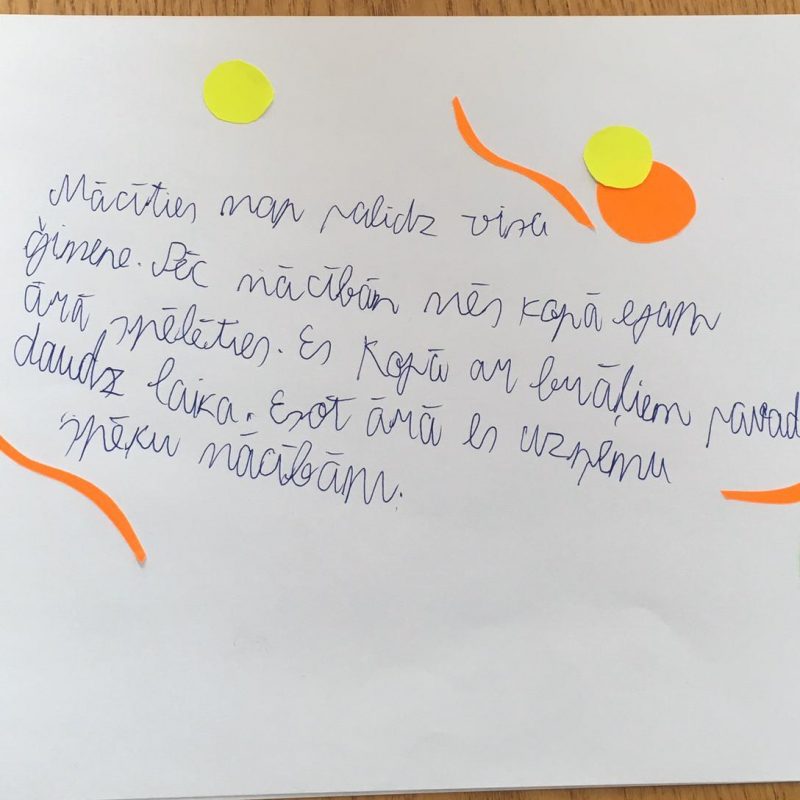 Mācīties man palīdz visa
ģimene. Pēc mācībām mēs kopā ejam
ārā spēlēties. Es kopā ar brāļiem pavad
daudz laika. Esot ārā es uzņemu
spēku mācībām.